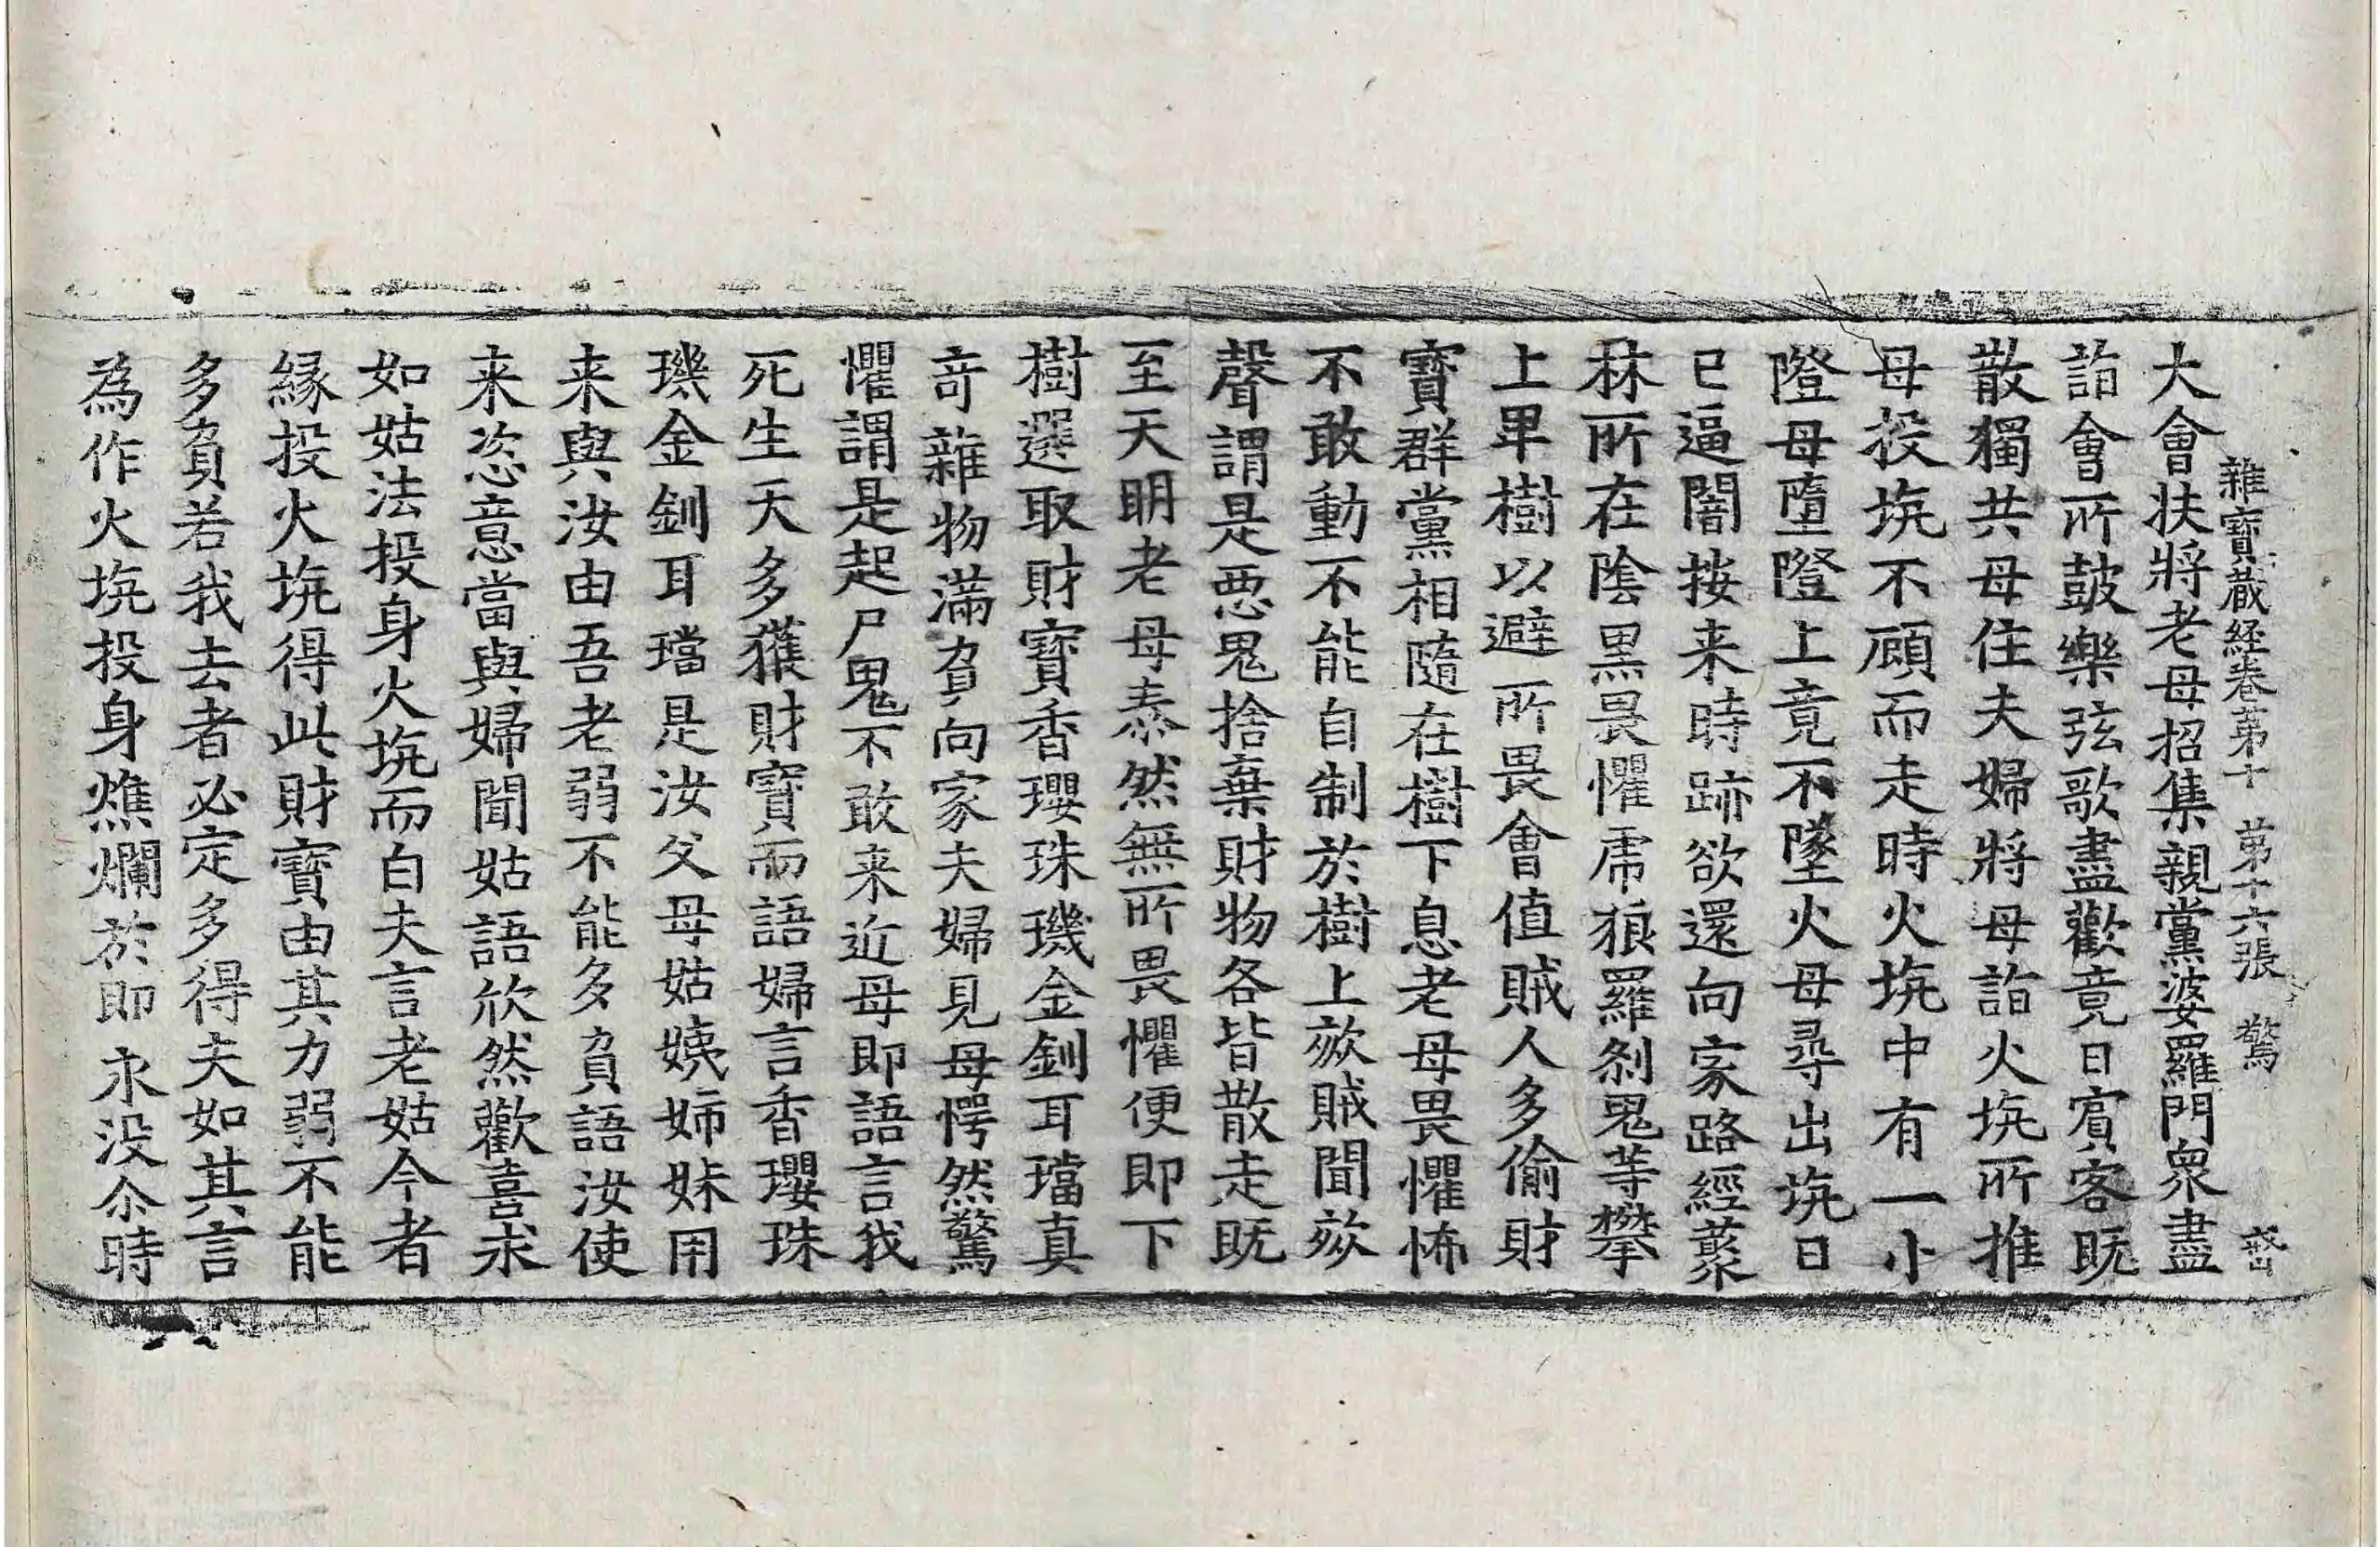 雜寶藏経卷苐十 苐十六張 驚
大會扶將老母招集親黨婆羅門衆盡
詣會所鼓樂弦歌盡歡竟日賓客既
散獨共母住夫婦將母詣火坑所推
母投坑不顧而走時火坑中有一小
隥母墮隥上竟不墜火母尋出坑日
已逼闇按来時跡欲還向家路經藂
林所在陰黒畏懼虎狼羅刹鬼等攀
上卑樹以避所畏會值賊人多偷財
寶群黨相隨在樹下息老母畏懼怖
不敢動不能自制於樹上欬賊聞欬
聲謂是悪鬼捨棄財物各皆散走既
至天明老母泰然無所畏懼便即下
樹選取財寶香瓔珠璣金釧耳璫真
竒雜物滿負向家夫婦見母愕然驚
懼謂是起尸鬼不敢来近母即語言我
死生天多獲財寶而語婦言香瓔珠
璣金釧耳璫是汝父母姑姨姉妹用
来與汝由吾老弱不能多負語汝使
来恣意當與婦聞姑語欣然歡喜求
如姑法投身火坑而白夫言老姑今者
縁投火坑得此財寶由其力弱不能
多負若我去者必定多得夫如其言
為作火坑投身燋爛於即永没尒時